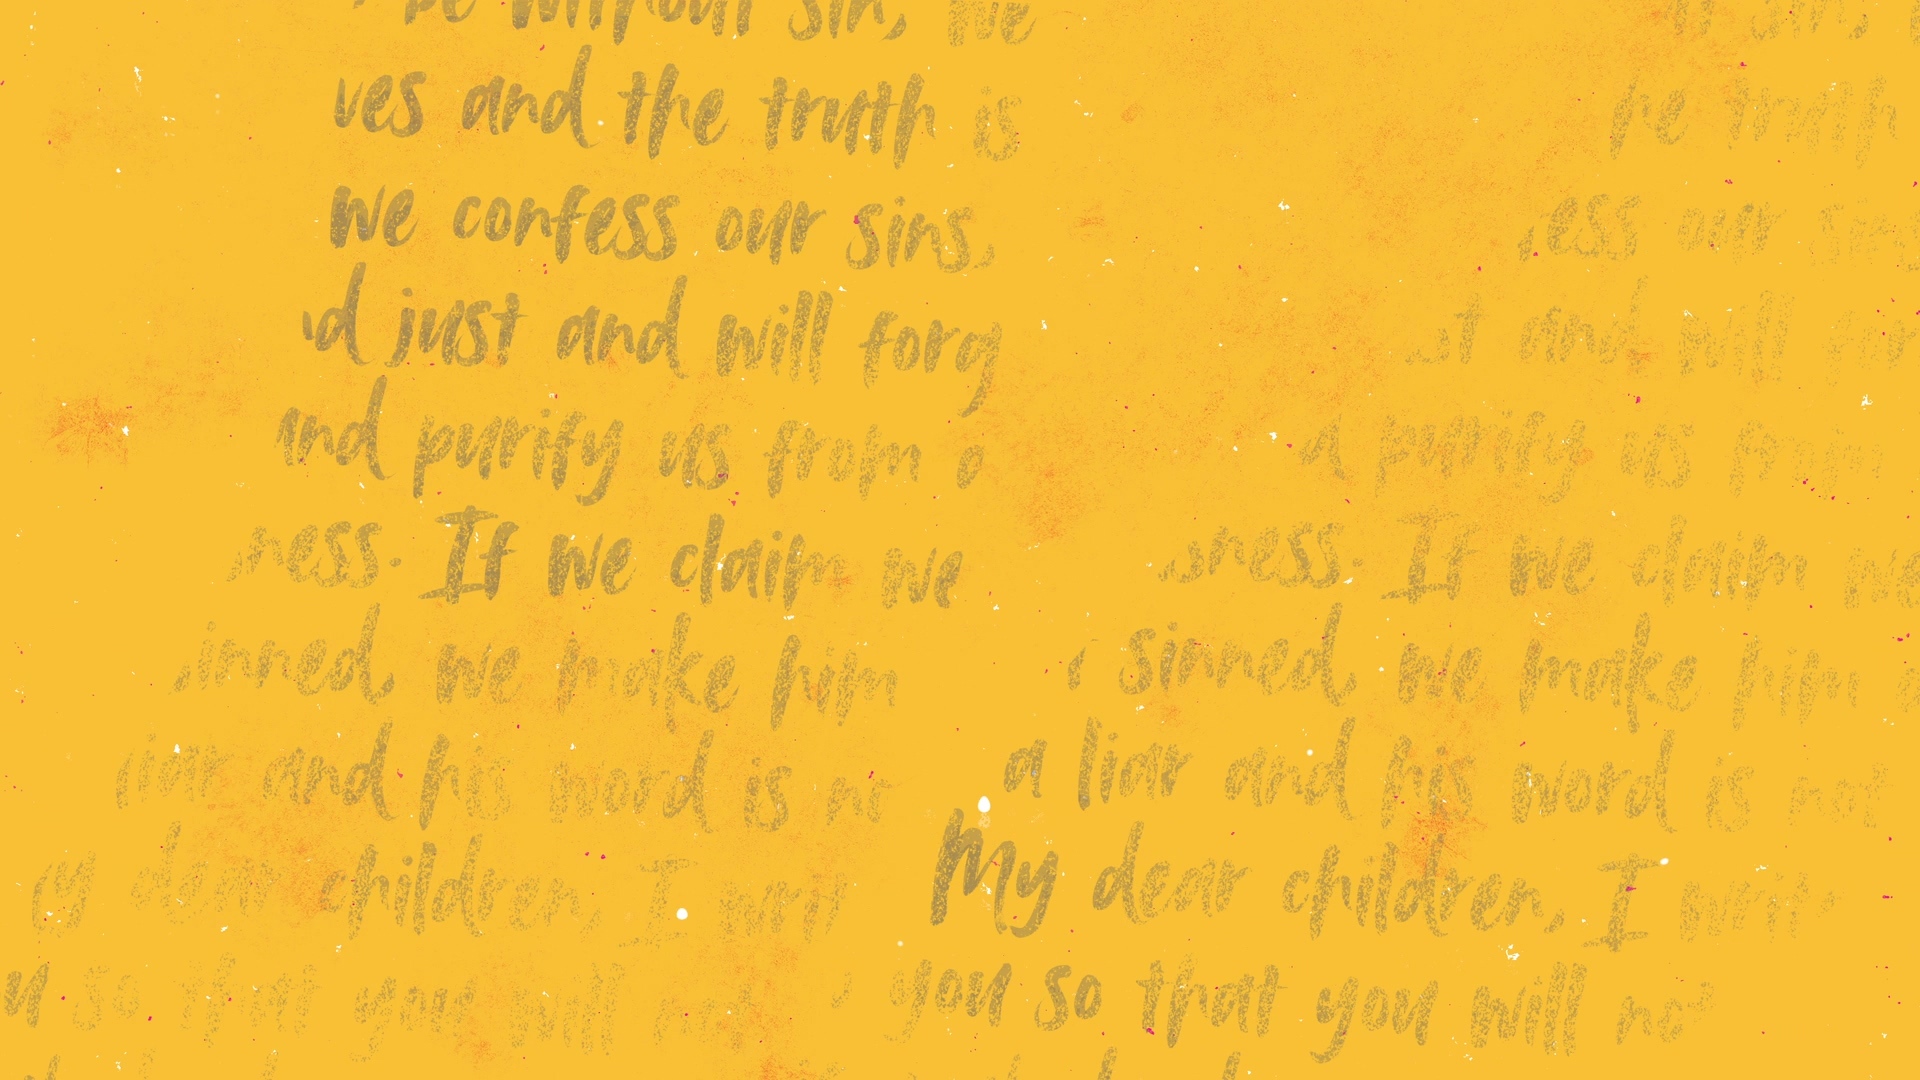 be without sin, we
ves and the truth is
we confess our sins,
d just and will forg
and purify us from
ness. If we claim we
inned, we make him
liar and his word is
dear children, I writ
so that you will not
he truth
ess our sins
t and will for
purify us from
sness. If we claim we
sinned, we make him
a liar and his word is not
My dear children, I writ
you so that you will not